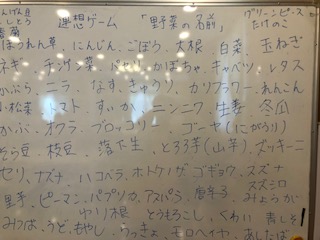 いんげん豆
ししとう 連想ゲーム 「野菜の名前」 グリーンピース
春菊 たけのこ
ほうれん草 にんじん、ごぼう、大根、白菜 玉ねぎ
ネギ チンゲン菜 パセリ かぼちゃ キャベツ レタス
からし、ニラ なす、きゅうり カリフラワー、れんこん
小松菜 トマト すいか、ニンニク、生姜 冬瓜
かぶ、オクラ ブロッコリー ゴーヤ(にがうり)
そら豆、枝豆 落花生 とろろ芋(山芋)、ズッキーニ
セリ、ナズナ ハコベラ、ホトケノザ ゴギョウ、スズナ
スズシロ
里芋、ピーマン パプリカ、アスパラ 唐辛子 みょうが
ゆり根 とうもろこし、くわい 青しそ
みつば、うど、もやし らっきょ、モロヘイヤ、あしたば